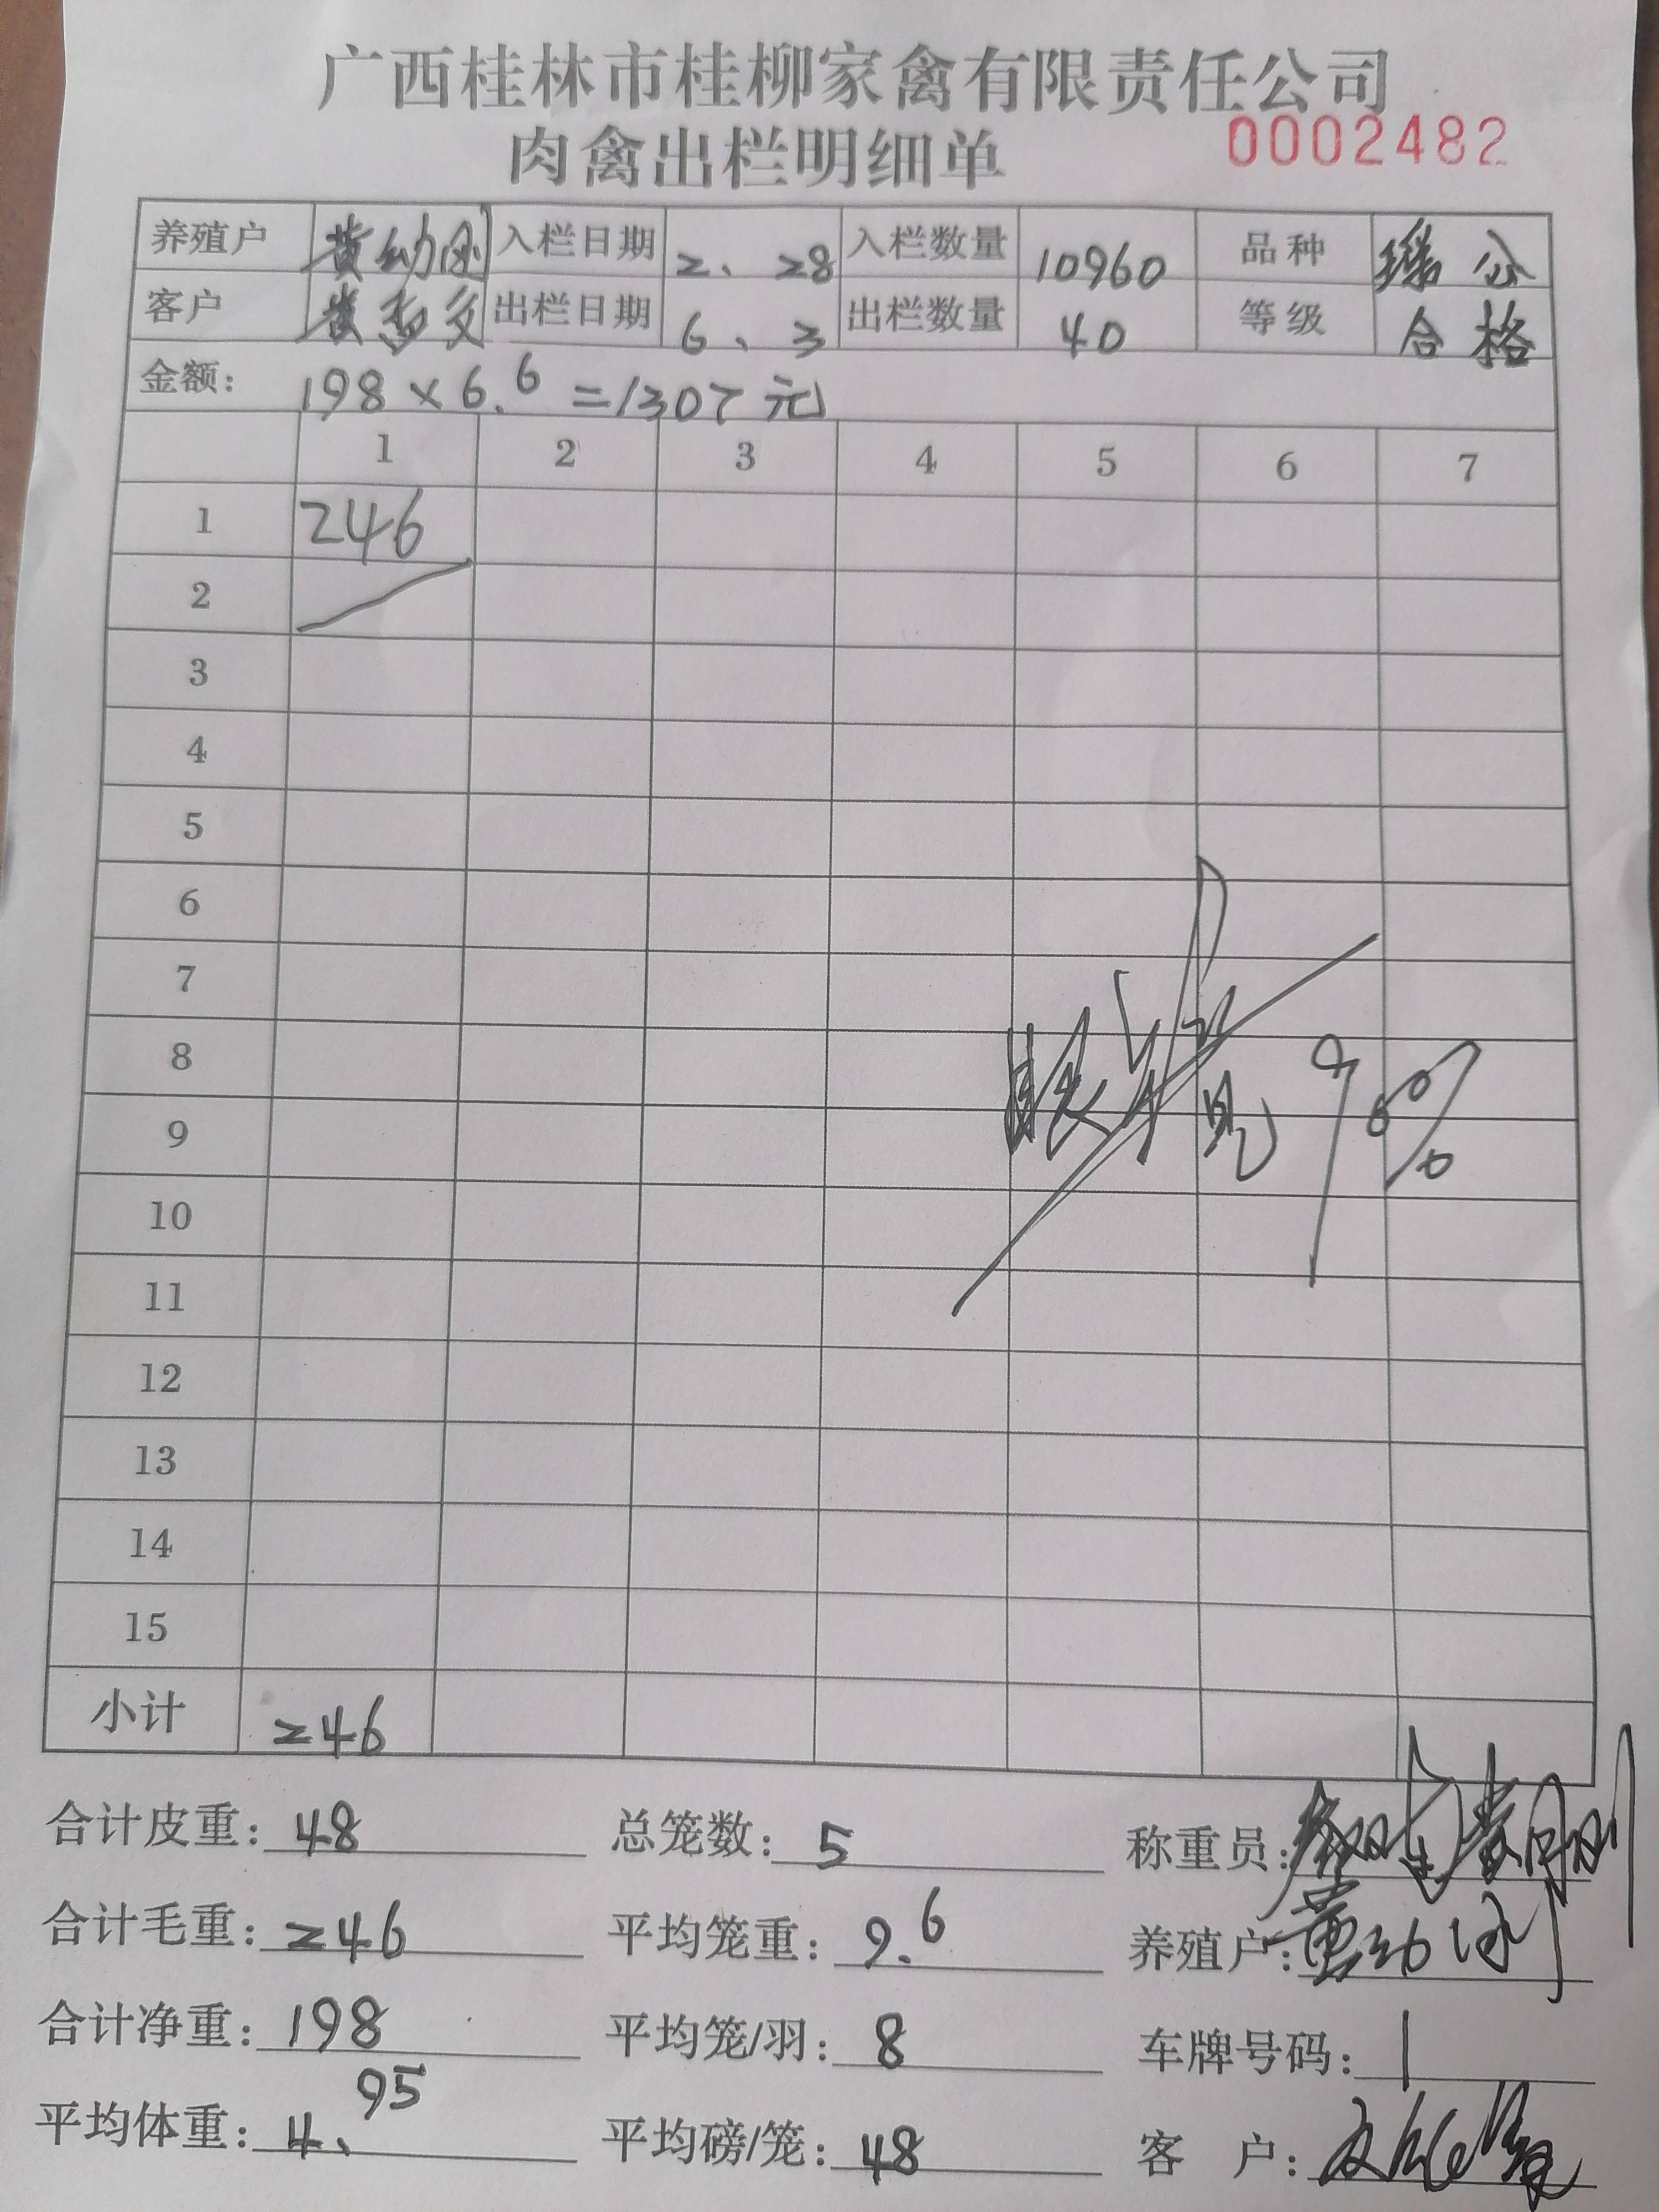 广西桂林市桂柳家禽有限责任公司
肉禽出栏明细单 0002482
养殖户 黄幼刚 入栏日期 2、28 入栏数量 10960 品种 瑶公
客户 黄 出栏日期 6、3 出栏数量 40 等级 合格
金额: 198×6.6=1307元
1 2 3 4 5 6 7
1 246
2
3
4
5
6
7
8
9
10
11
12
13
14
15
小计 246
合计皮重: 48 总笼数: 5 称重员:
合计毛重: 246 平均笼重: 9.6 养殖户: 黄幼刚
合计净重: 198 平均笼/羽: 8 车牌号码:
平均体重: 4、95 平均磅/笼: 48 客 户: